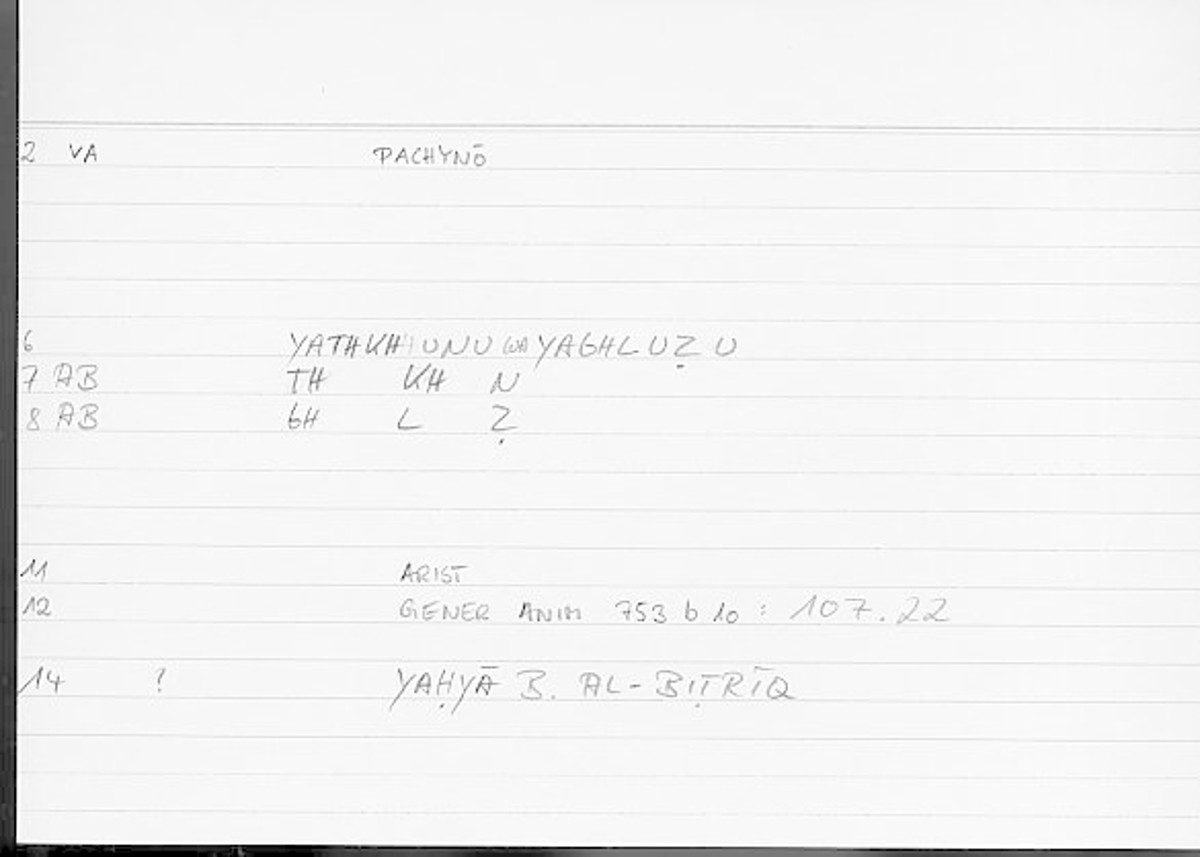 2 VA PACHYNŌ
6 YATHKHUNU WA YAGHLUẒU
7 AB TH KH N
8 AB GH L Ẓ
11 ARIST
12 GENER ANIM 753 b 10 : 107.22
14 ? YAḤYĀ B. AL-BIṬRĪQ